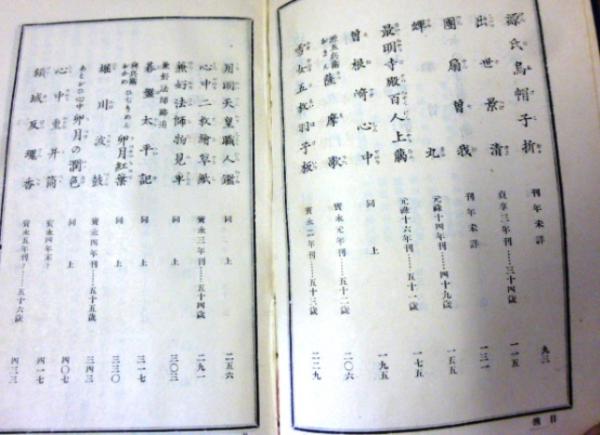 源氏烏帽子折 刊年未詳 九三
出世景清 貞享三年刊……三十四歳 一一五
團扇曾我 刊年未詳 一三一
蟬丸 元祿十四年刊……四十九歳 一五五
最明寺殿百人上﨟 元祿十六年刊……五十一歳 一七五
曾根崎心中 同上 一九五
薩摩歌 寶永元年刊……五十二歳 二〇六
雪女五枚羽子板 寶永二年刊……五十三歳 二二九
目次
用明天皇職人鑑 同上 二五六
心中二枚繪草紙 寶永三年刊……五十四歳 二九一
兼好法師物見車 同上 三〇三
兼好法師跡追
碁盤太平記 同上 三一七
卯月紅葉 同上 三三〇
堀川波鼓 寶永四年刊……五十五歳 三四三
あとおひ心中 卯月の潤色 同上 四〇七
心中重井筒 寶永四年末? 四一七
傾城反魂香 寶永五年刊?……五十六歳 四三三